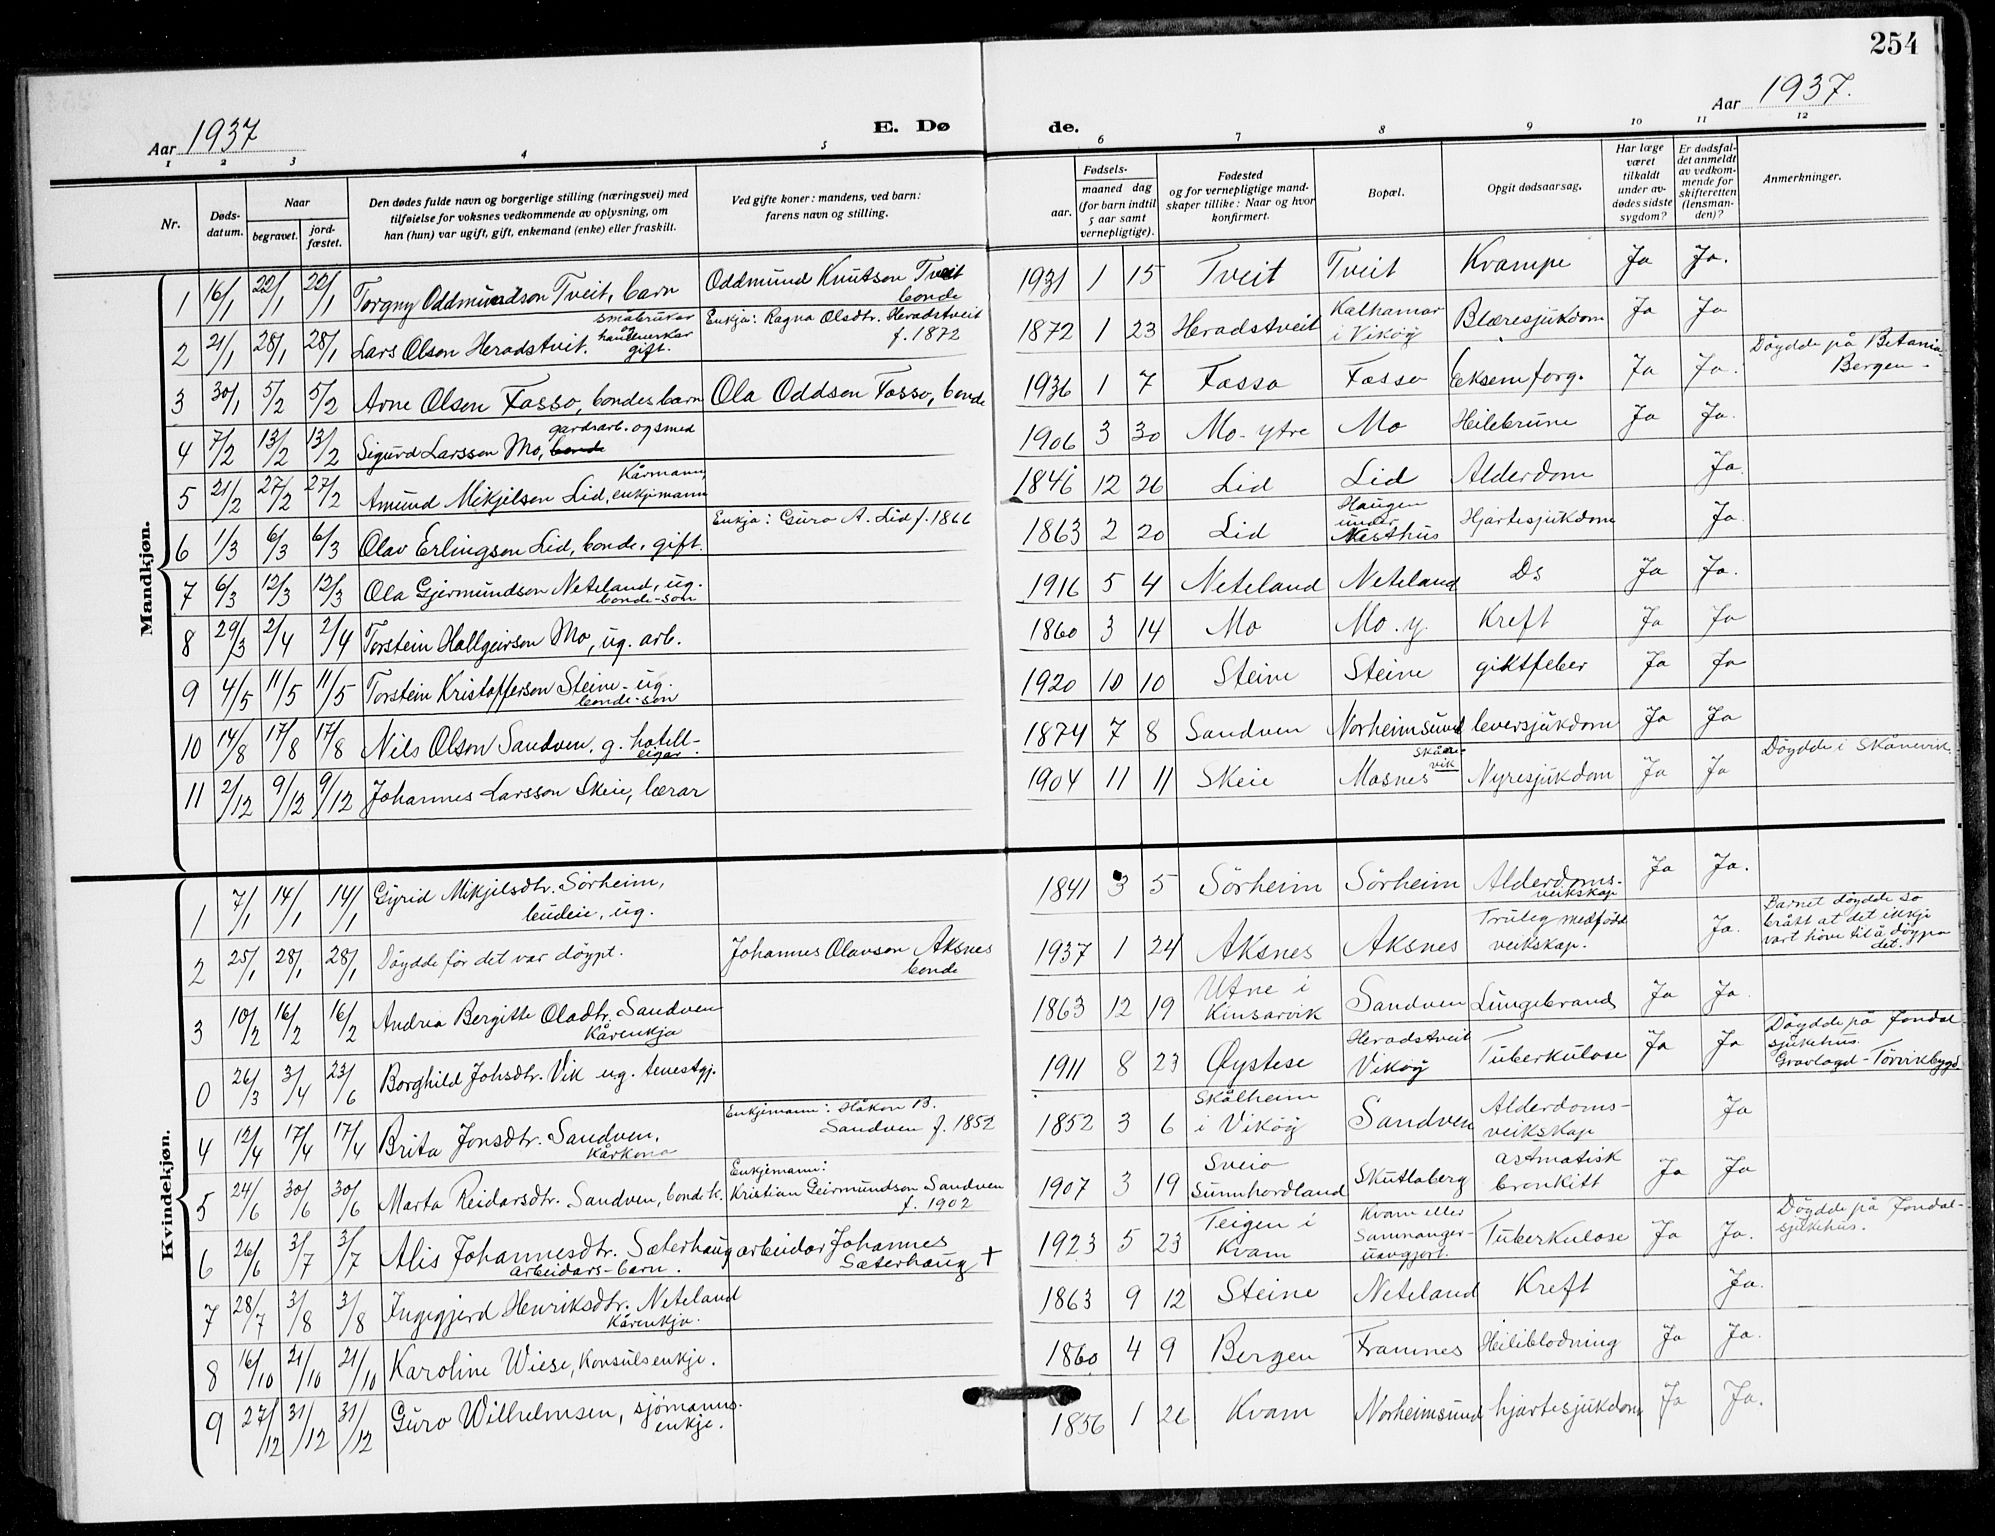 254
Aar 1937
E. Dø
de.
Aar 1937.
1 2 3 4 5 6 7 8 9 10 11 12
Nr.
Døds-
datum.
Naar
begravet.
jord-
fæstet.
Den dødes fulde navn og borgerlige stilling (næringsvei) med
tilføielse for voksnes vedkommende av oplysning, om
han (hun) var ugift, gift, enkemand (enke) eller fraskilt.
Ved gifte koner: mandens, ved barn:
farens navn og stilling.
Fødsels-
aar.
maaned dag
(for barn indtil
5 aar samt
vernepligtige).
Fødested
og for vernepligtige mand-
skaper tillike: Naar og hvor
konfirmert.
Bopæl.
Opgit dødsaarsag.
Har læge
været
tilkaldt
under av-
dødes sidste
sygdom?
Er dødsfal-
det anmeldt
av vedkom-
mende for
skifteretten
(lensman-
den)?
Anmerkninger.
Mandkjøn.
1 16/1 22/1 22/1 Torgny Oddmundson Tveit, barn Oddmund Knutson Tveit bonde 1931 1 15 Tveit Tveit Krampe Ja Ja.
2 21/1 28/1 28/1 Lars Olson Heradstveit. småbrukar og handverkar gift. Enkja: Ragna Olsdtr. Heradstveit f. 1872 1872 1 23 Heradstveit Kalhamar i Vikøy Blæresjukdom Ja Ja
3 30/1 5/2 5/2 Arne Olsen Fosso, bondesbarn Ola Oddson Fosso, bonde 1936 1 7 Fosso Fosso Eksemforg. Ja Ja. Döydde på Betania Bergen.
4 7/2 13/2 13/2 Sigurd Larsson Mo, bonde gardsarb. og smed 1906 3 30 Mo-ytre Mo Heilebrune Ja Ja.
5 21/2 27/2 27/2 Amund Mikjelson Lid, Kårmann, enkjemann 1846 12 26 Lid Lid Alderdom Ja.
6 1/3 6/3 6/3 Olav Erlingson Lid, bonde, gift. Enkja: Guro A. Lid f. 1866 1863 2 20 Lid Haugen under Nesthus Hjartesjukdom Ja.
7 6/3 12/3 12/3 Ola Gjermundson Neteland, ug. bonde-son 1916 5 4 Neteland Neteland Ds Ja Ja.
8 29/3 2/4 2/4 Torstein Hallgeirson Mo, ug. arb. 1860 3 14 Mo Mo. y. Kreft Ja Ja
9 4/5 11/5 11/5 Torstein Kristofferson Steine - ug. bonde-son 1920 10 10 Steine Steine giktfeber Ja Ja
10 14/8 17/8 17/8 Nils Olson Sandven, g. hotell-eigar. 1874 7 8 Sandven Norheimsund leversjukdom Ja Ja
11 2/12 9/12 9/12 Johannes Larsson Skeie, lærar 1904 11 11 Skeie Masnes Skånevik Nyresjukdom Ja Ja Döydde i Skånevik.
Kvindekjøn.
1 7/1 14/1 14/1 Gyrid Mikjelsdtr. Sörheim, budeie, ug. 1841 3 5 Sörheim Sörheim Alderdoms-veikskap Ja Ja.
2 25/1 28/1 28/1 Döydde för det var döypt. Johannes Olavson Aksnes bonde 1937 1 24 Aksnes Aksnes Truleg medfödd veikskap. Ja. Barnet döydde so brått at det ikkje vart höve til å döypa det.
3 10/2 16/2 16/2 Andrea Bergitte Oladtr. Sandven Kårenkja 1863 12 19 Utne i Kinsarvik Sandven Lungebrand Ja Ja.
0 26/3 3/4 23/6 Borghild Johsdtr. Vik ug. tenestgj. 1911 8 23 Øystese Heradstveit Vikøy Tuberkulose Ja Ja Döydde på Jondal sjukehus. Gravlagd - Törvikbygd
4 12/4 17/4 17/4 Brita Jonsdtr. Sandven, Kårkona Enkjemann: Håkon B. Sandven f. 1852 1852 3 6 Skålheim i Vikøy Sandven Alderdoms-veikskap Ja
5 24/6 30/6 30/6 Marta Reidarsdtr. Sandven, bonde k. Enkjemann: Kristian Geirmundson Sandven f. 1902 1907 3 19 Sveio Sunnhordland Skutlaberg astmatisk bronkitt Ja Ja
6 26/6 3/7 3/7 Alis Johannesdtr. Sæterhaug arbeidars-barn. arbeidar Johannes Sæterhaug + 1923 5 23 Teigen i Kvam Kvam eller Samnanger-uavgjort. Tuberkulose Ja Ja. Döydde på Jondal-sjukehus.
7 28/7 3/8 3/8 Ingegjerd Henriksdtr. Neteland Kårenkja. 1863 9 12 Steine Neteland Kreft Ja.
8 16/10 21/10 21/10 Karoline Wiese, Konsulsenkje. 1860 4 9 Bergen Framnes Heiliblodning Ja Ja.
9 27/12 31/12 31/12 Guro Wilhelmsen, sjömanns-enkje. 1856 1 26 Kvam Norheimsund hjartesjukdom Ja Ja.